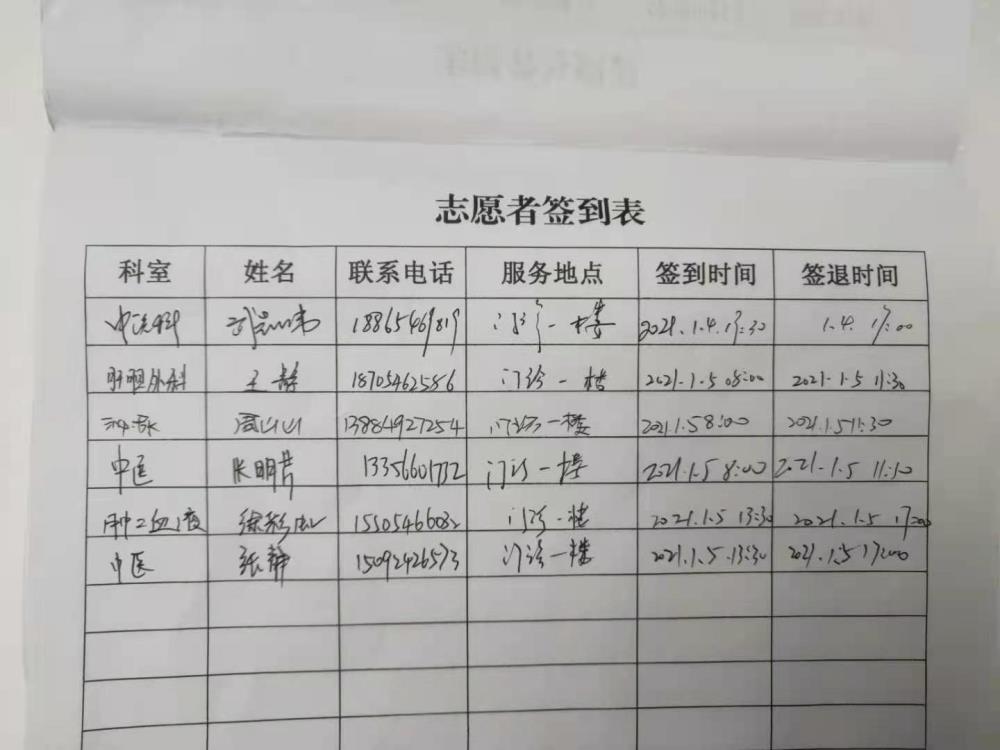 志愿者签到表
科室 姓名 联系电话 服务地点 签到时间 签退时间
18865469819 门诊一楼 2021.1.4.13:30 1.4. 17:00
肝胆外科 王静 18705462586 门诊一楼 2021.1.5 08:00 2021.1.5 11:30
周山山 13884927254 门诊一楼 2021.1.5 8:00 2021.1.5 11:30
中医 张明芹 13356601732 门诊一楼 2021.1.5 8:00 2021.1.5 11:30
肿二血液 15505466032 门诊一楼 2021.1.5 13:30 2021.1.5 17:00
中医 张静 15092426573 门诊一楼 2021.1.5.13:30 2021.1.5 17:00